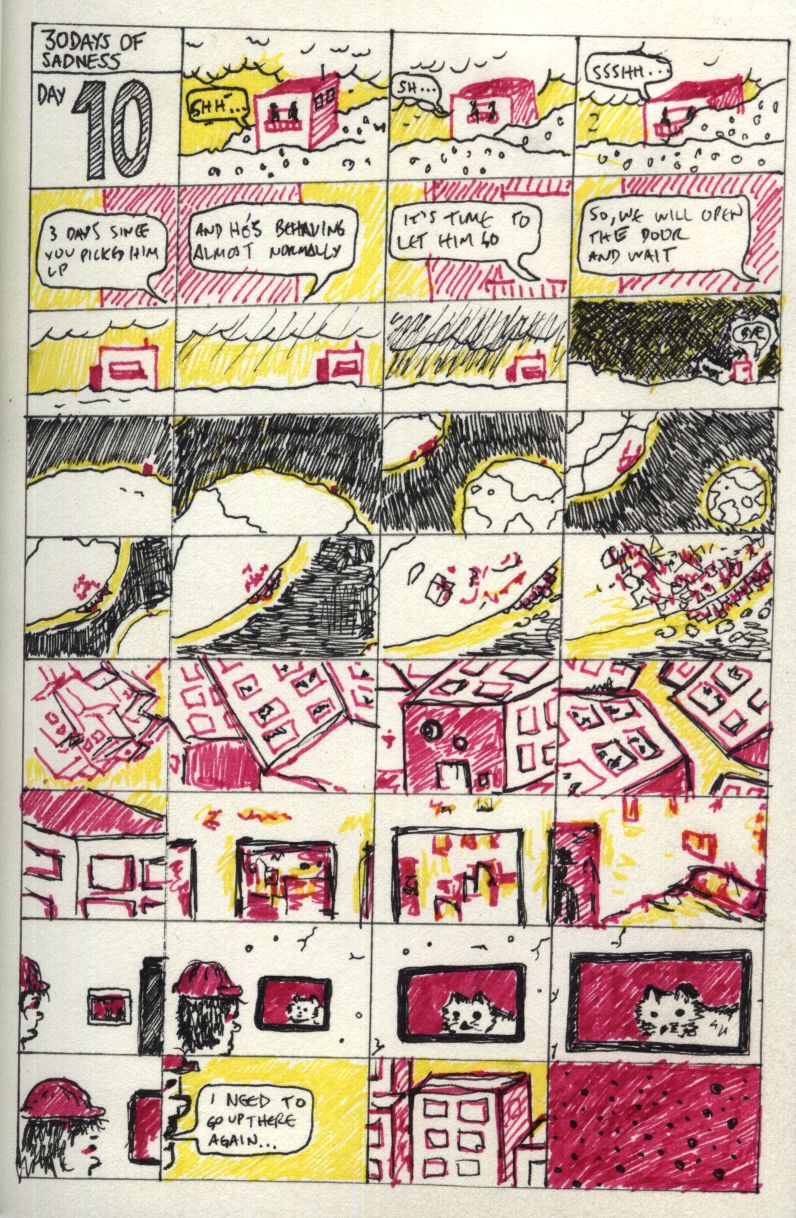 30 DAYS OF
SADNESS
DAY 10
SHH...
SH...
SSSHH...
3 DAYS SINCE
YOU PICKED HIM
UP
AND HE'S BEHAVING
ALMOST NORMALLY
IT'S TIME TO
LET HIM GO
SO, WE WILL OPEN
THE DOOR
AND WAIT
BYE
I NEED TO
GO UP THERE
AGAIN...